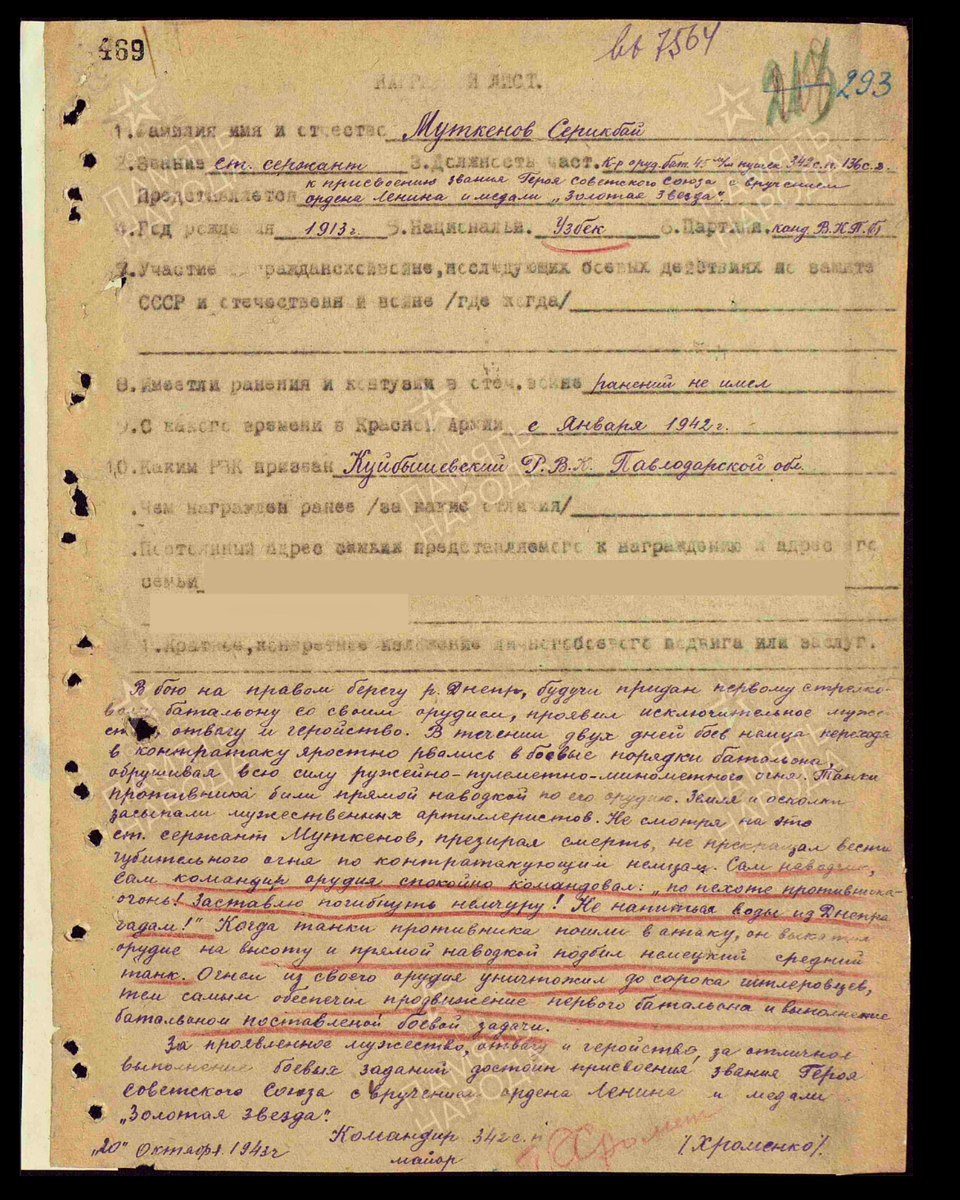 469
вх 7564
293
НАГРАДНОЙ ЛИСТ.
1. Фамилия имя и отчество Муткенов Серикбай
2. Звание ст. сержант 3. Должность част. К-р оруд. бат. 45 м/м пушек 342 с.п. 136 с.д.
к присвоению звания Героя Советского Союза с вручением
Представляется ордена Ленина и медали „Золотая Звезда".
4. Год рождения 1913 г. 5. Националън. Узбек 6. Партийн. канд. В.К.П.(б)
7. Участие в гражданскойвойне, последующих боевых действиях по защите
СССР и отечественн й войне /где когда/
8. Имеетли ранения и контузии в отеч. войне ранений не имел
9. С какого времени в Красной Армии с Января 1942 г.
10. Каким РВК призван Куйбышевский Р.В.К. Павлодарской обл.
. Чем награжден ранее /за какие отличия/
. Постоянный адрес представляемого к награждению и адрес его
семьи
1. Краткое, конкретное изложение личногобоевого подвига или заслуг.
В бою на правом берегу р. Днепр, будучи придан первому стрелко-
вому батальону со своим орудием, проявил исключительное муже-
ство, отвагу и геройство. В течении двух дней боев немцы переходя
в контратаку яростно рвались в боевые порядки батальона,
обрушивая всю силу ружейно-пулеметно-минометного огня. Танки
противника били прямой наводкой по его орудию. Земля и осколки
засыпали мужественных артиллеристов. Не смотря на это
ст. сержант Муткенов, презирая смерть, не прекращал вести
губительного огня по контратакующим немцам. Сам наводчик,
сам командир орудия спокойно командовал: „по пехоте противника-
огонь! Заставлю погибнуть немчуру! Не напиться воды из Днепра
гадам!" Когда танки противника пошли в атаку, он выкатил
орудие на высоту и прямой наводкой подбил немецкий средний
танк. Огнем из своего орудия уничтожил до сорока гитлеровцев,
тем самым обеспечил продвижение первого батальона и выполнение
батальоном поставленой боевой задачи.
За проявленное мужество, отвагу и геройство, за отличное
выполнение боевых заданий достоин присвоения звания Героя
Советского Союза с вручением ордена Ленина и медали
„Золотая Звезда".
Командир 342 с.п
„20" Октября 1943 г майор /Хроменко/.
ПАМЯТЬ НАРОДА